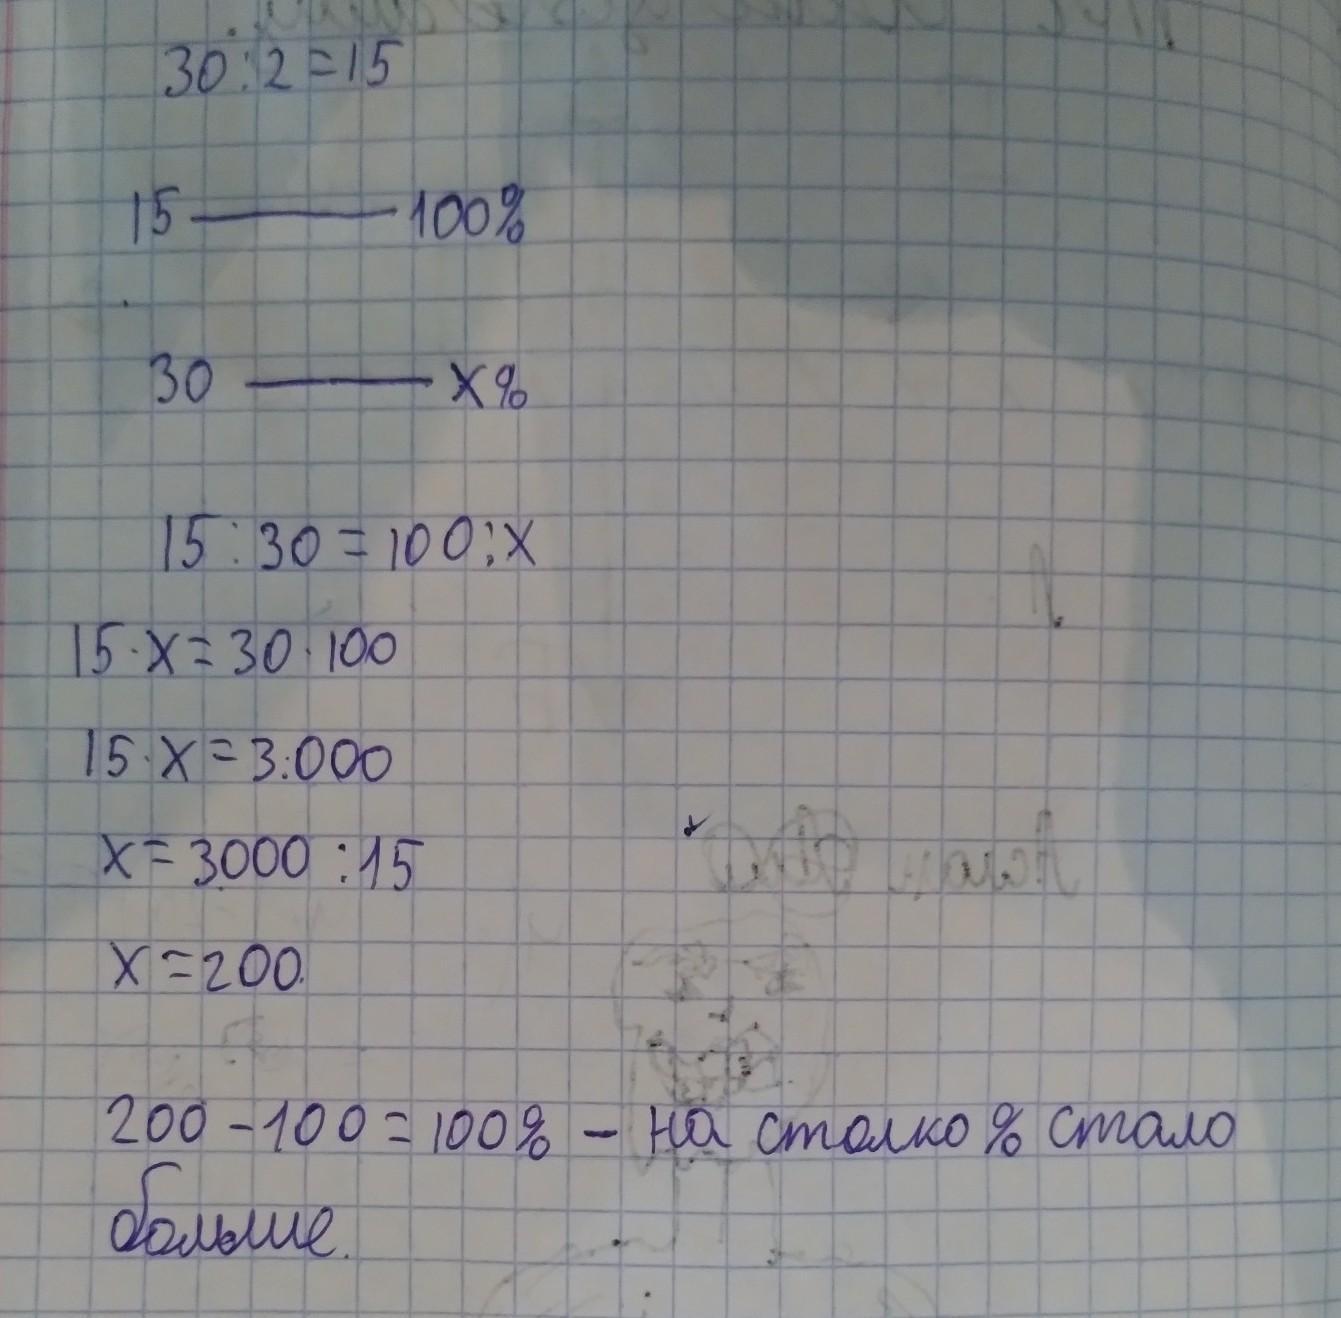 30:2=15
15 — 100%
30 — x%
15:30=100:x
15·x=30·100
15·x=3.000
x=3000:15
x=200.
200-100=100% - на столко % стало
больше.